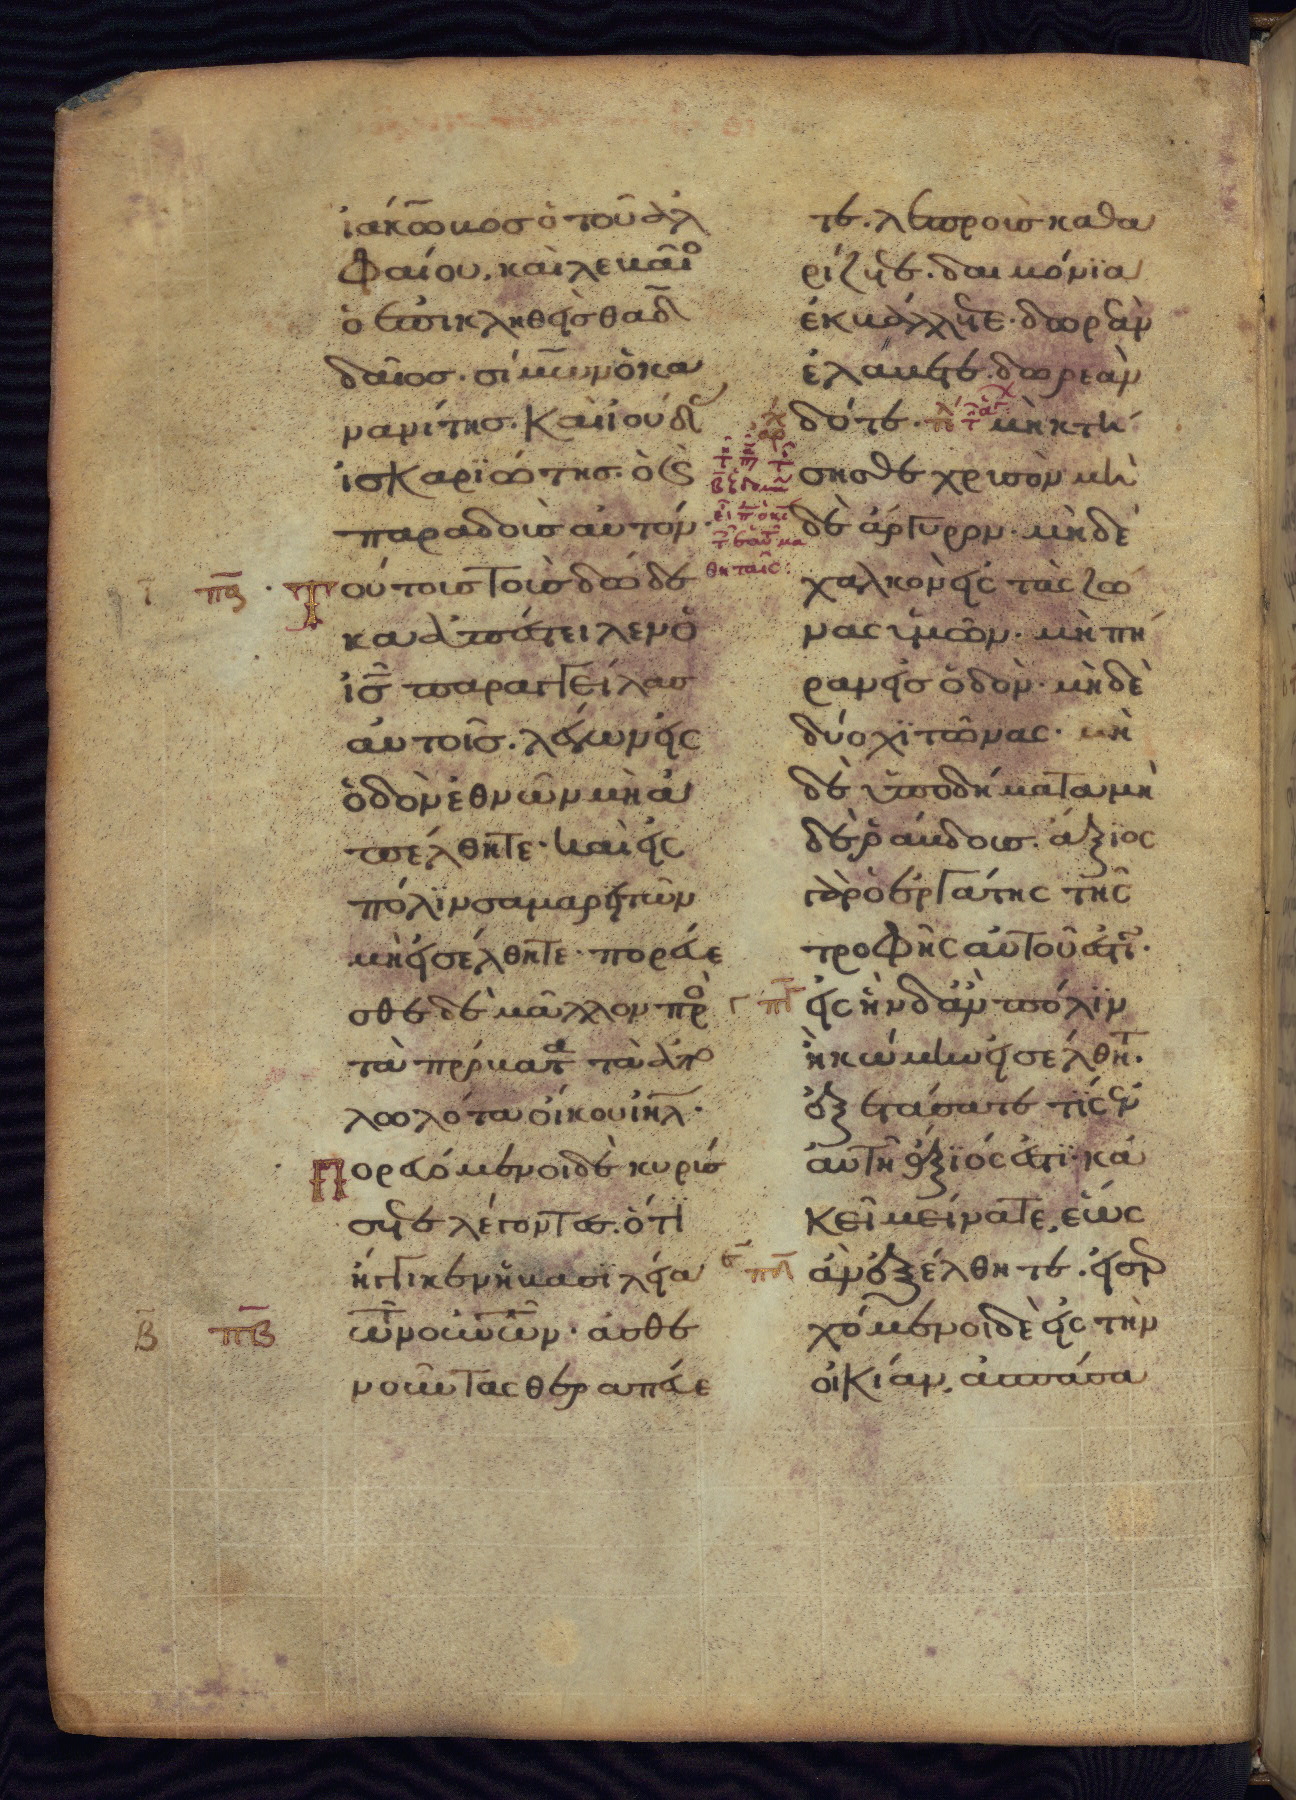 ἰάκωβος ὁ τοῦ ἀλ
φαίου. καὶ λεββαῖο
ὁ ἐπικληθεὶς θαδ
δαῖος. σίμων ὁ κα
νανίτης. καὶ ἰούδ
ἰσκαριώτης. ὁ κ
παραδοὺς αὐτόν.
Τούτους τοὺς δώδε
κα ἀπέστειλεν ὁ
ἰς παραγγείλας
αὐτοῖς. λέγων εἰς
ὁδὸν ἐθνῶν μὴ ἀ
πέλθητε. καὶ εἰς
πόλιν σαμαρειτῶν
μὴ εἰσέλθητε. πορεύε
σθε δὲ μᾶλλον πρὸ
τὰ πρόβατ τὰ ἀπο
λωλότα οἴκου ιηλ.
Πορευόμενοι δὲ κηρύσ
σετε λέγοντες. ὅτι
ἤγγικεν ἡ βασιλεία
τῶν οὐνῶν. ἀσθε
νοῦντας θεραπεύε
τε. λεπροὺς καθα
ρίζετε. δαιμόνϊα
ἐκβάλλετε. δωρεὰν
ἐλάβετε. δωρεὰν
δότε. μὴ κτή
σησθε χρυσὸν μὴ
δὲ ἄργυρον. μὴ δὲ
χαλκὸν εἰς τὰς ζώ
νας ὑμῶν. μὴ πή
ραν εἰς ὁδὸν. μὴ δὲ
δύο χϊτῶνας. μὴ
δὲ ὑποδήματα μὴ
δὲ ῥάβδους. ἄξϊος
γὰρ ὁ ἐργάτης τῆς
τροφῆς αὐτοῦ ἐστι.
εἰς ἣν δ' ἂν πόλϊν
ἢ κώμην εἰσέλθητ.
ἐξετάσατε τίς ἐν
αὐτῆ ἄξϊός ἐστϊ. κά
κεῖ μείνατε, ἕως
ἂν ἐξέλθητε. εἰσερ
χόμενοι δὲ εἰς τὴν
οἰκίαν, ἀσπάσα